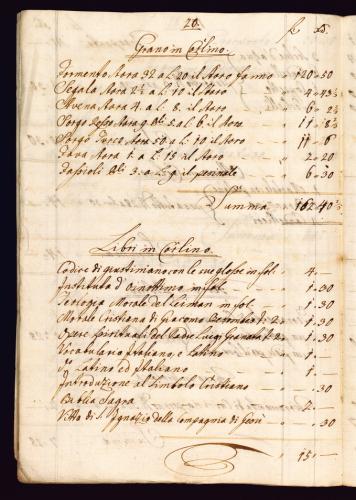 20.
Grano in Coslino.
Formento Stora 92 a L. 20 il Storo sonno 120 " 50
Segala Stora 2½ a L. 10 il Storo " 4 " 43½
Avena Stora 4. a L. 8. il Storo " 6 " 2½
Sorgo Stora 9 a L. 6. il Storo " 11 " 8½
Sorgo Turco Stora 50. a L. 10 il Storo " 11 " 6
Fava Stora 1. a L. 15 il Storo " 2 " 20
Fasioli 3. a L. 9 il " 6 " 30
Summa 162 " 40½
Libri in Coslino.
Codice di giustiniano con le sue glose in fol. " 4. –
Instituta d' in fol. " 1 " 30
Teologia Morale del in fol. " 1 " 30
Morale Cristiana di Giacomo t. 2. " 1 " 30
Opere spirituali del Padre Luigi Granata t. 2. " 1 " 30
Vocabulario Italiano, e Latino " 1 –
Latino ed Italiano " 1 –
Introduzione al Simbolo Cristiano " – 30
Biblia Sagra " 2 –
Vitta di S. Ignazio della Compagnia di Gesù " – 30
" 15 –